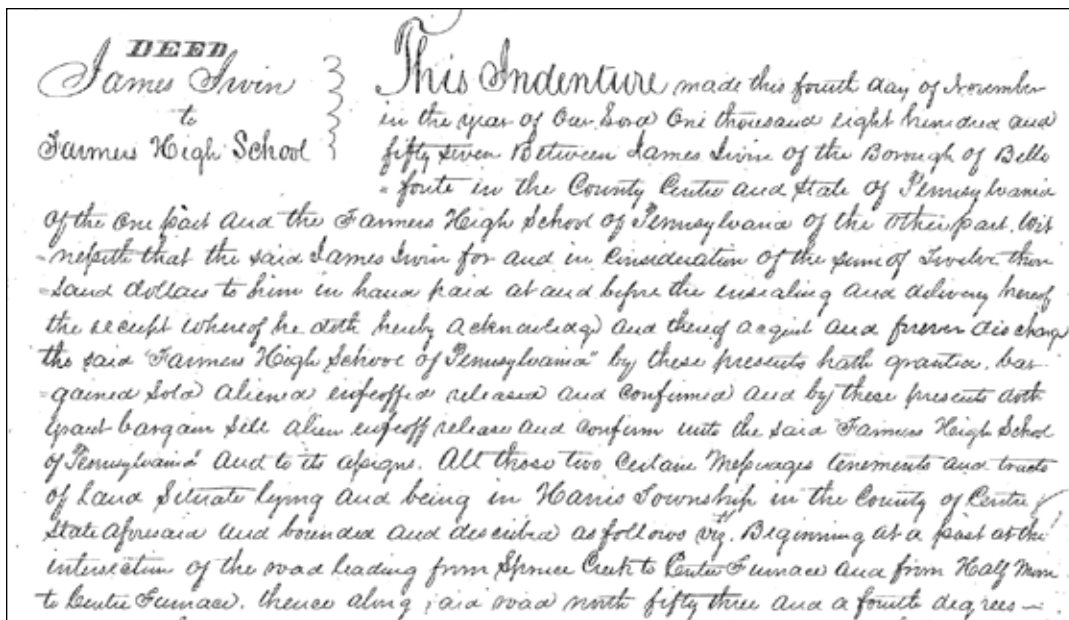 DEED
James Irvin
to
Farmers High School
This Indenture made this fourth day of November
in the year of Our Lord One thousand eight hundred and
fifty seven Between James Irvin of the Borough of Belle
=fonte in the County Centre and State of Pennsylvania
of the One part and the Farmers High School of Pennsylvania of the Other part. Wit
=nesseth that the said James Irvin for and in Consideration of the sum of Twelve thou
=sand dollars to him in hand paid at and before the ensealing and delivery hereof
the receipt whereof he doth hereby acknowledge and thereof acquit and forever discharge
the said "Farmers High School of Pennsylvania" by these presents hath granted. bar-
=gained Sold aliened enfeoffed released and Confirmed and by these presents doth
Grant bargain Sell alien enfeoff release and Confirm unto the said "Farmers High School
of Pennsylvania" And to its assigns. All those two Certain Messuages tenements and tracts
of Land Situate lying and being in Harris Township in the County of Centre &
State aforesaid and bounded and described as follows viz. Beginning at a post at the
intersection of the road leading from Spruce Creek to Centre Furnace and from Half Moon
to Centre Furnace. thence along said road north fifty three and a fourth degrees